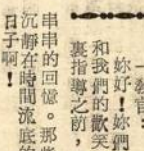 一敎官：
妳好！妳們
和我們的歡笑
裏指導之前，
串串的回憶。那些
沉靜在時間流底的
日子啊！